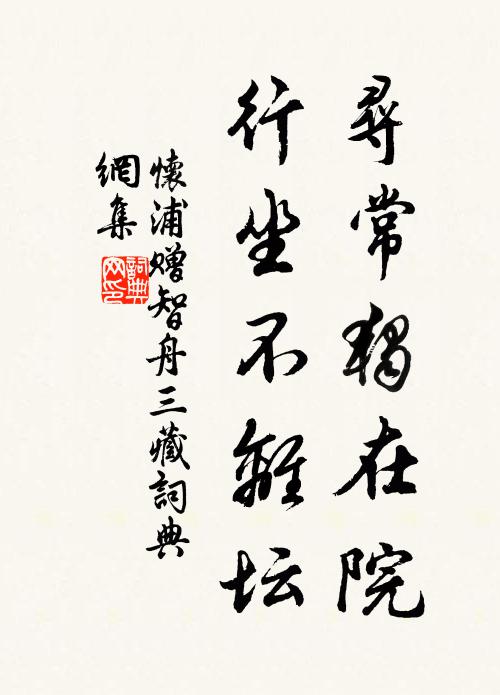 尋常獨在院
行坐不離坛
懷浦赠智舟三藏詞典
網集
詞典
网印